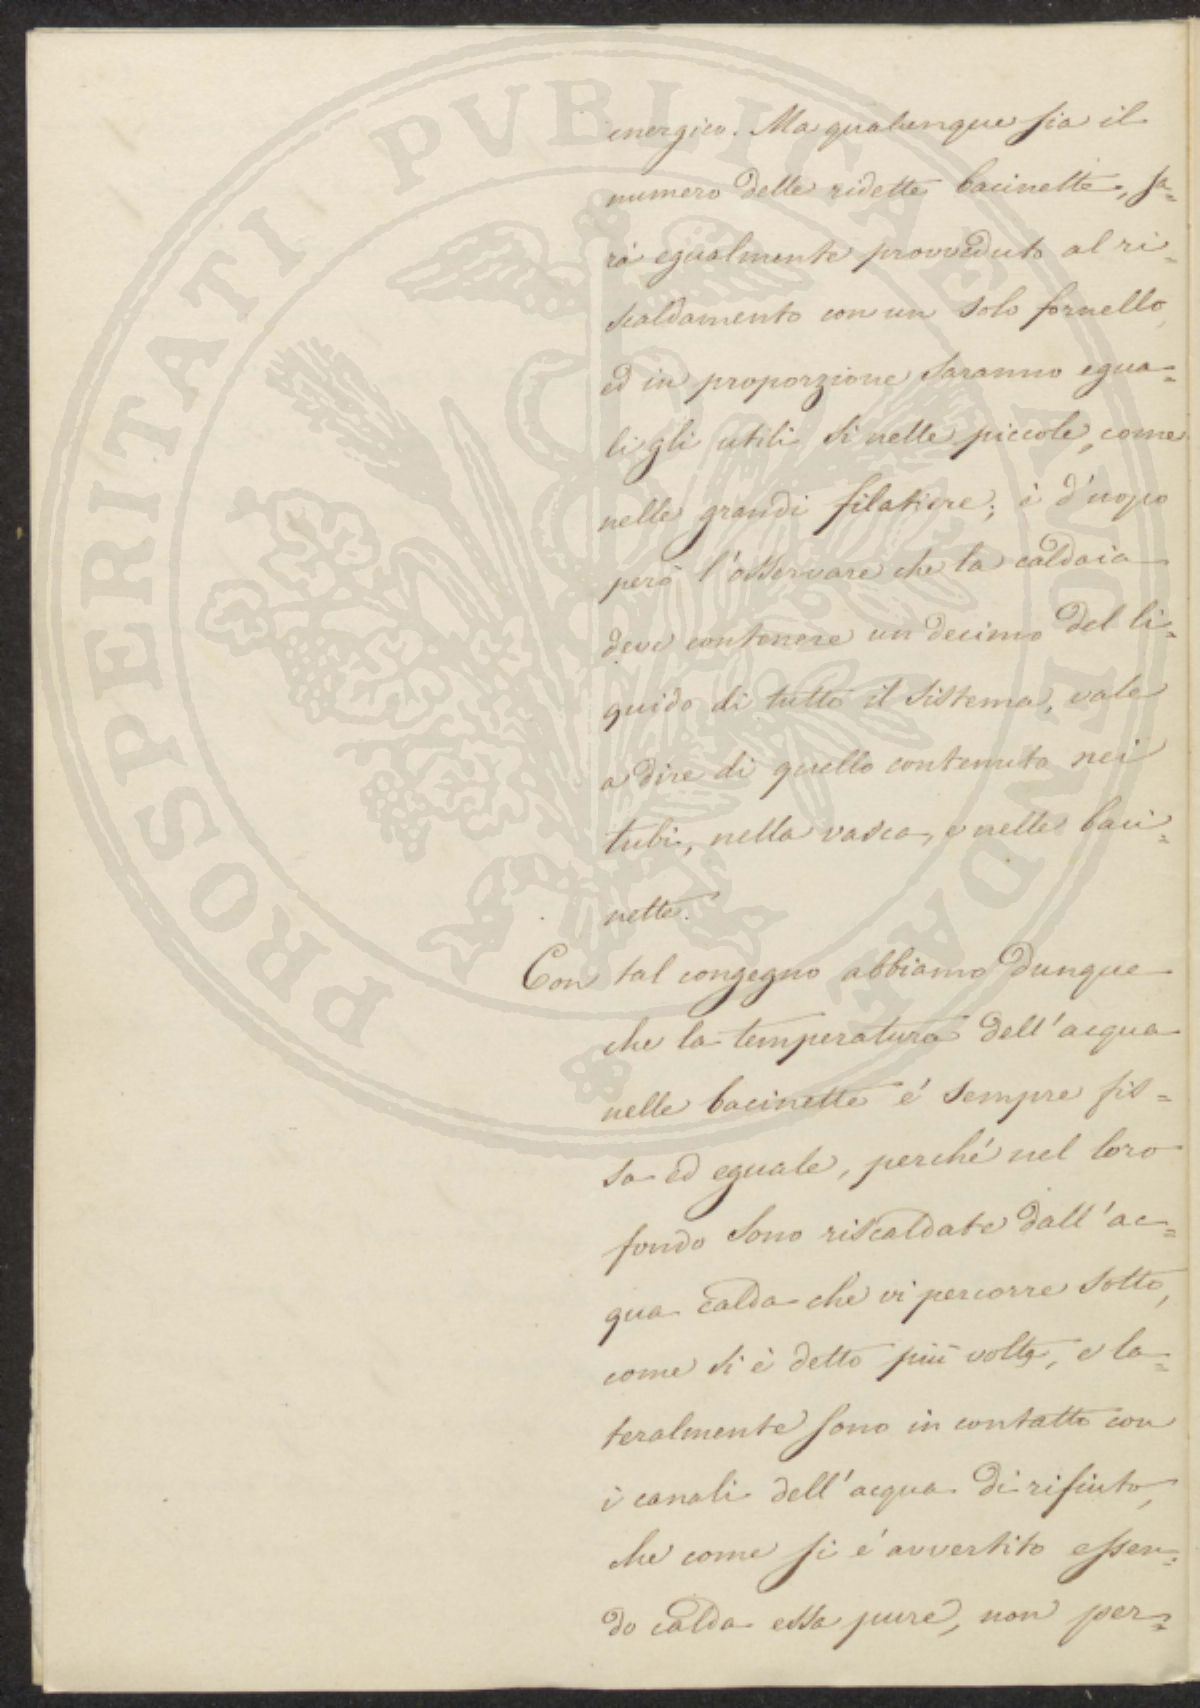 energico. Ma qualunque sia il
numero delle ridette bacinette, sa=
rà egualmente provveduto al ri=
scaldamento con un solo fornello,
ed in proporzione saranno egua=
li gli utili sì nelle piccole, come
nelle grandi filatiere; è d'uopo
però l'osservare che la caldaia
deve contenere un decimo del li=
quido di tutto il sistema, vale
a dire di quello contenuto nei
tubi, nella vasca, e nelle baci=
nette.
Con tal congegno abbiamo dunque
che la temperatura dell'acqua
nelle bacinette é sempre fis=
sa ed eguale, perché nel loro
fondo sono riscaldate dall'ac=
qua calda che vi percorre sotto,
come si è detto più volte, e la=
teralmente sono in contatto con
i canali dell'acqua di rifiuto,
che come si é avvertito essen=
do calda essa pure, non per=
PROSPERITATI PVBLICAE AVGENDAE